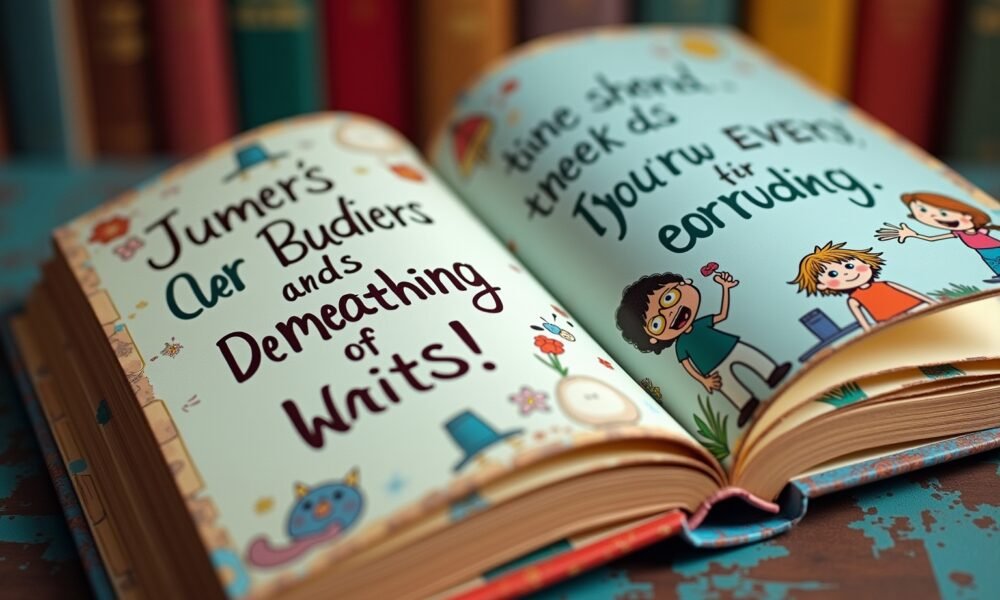 Jumer's
Cler Budiers
ands
Demeathing
of
Wraits!
tiine shond.
tneek ds
Tyou'rw EVERY,
fir
eorruding.